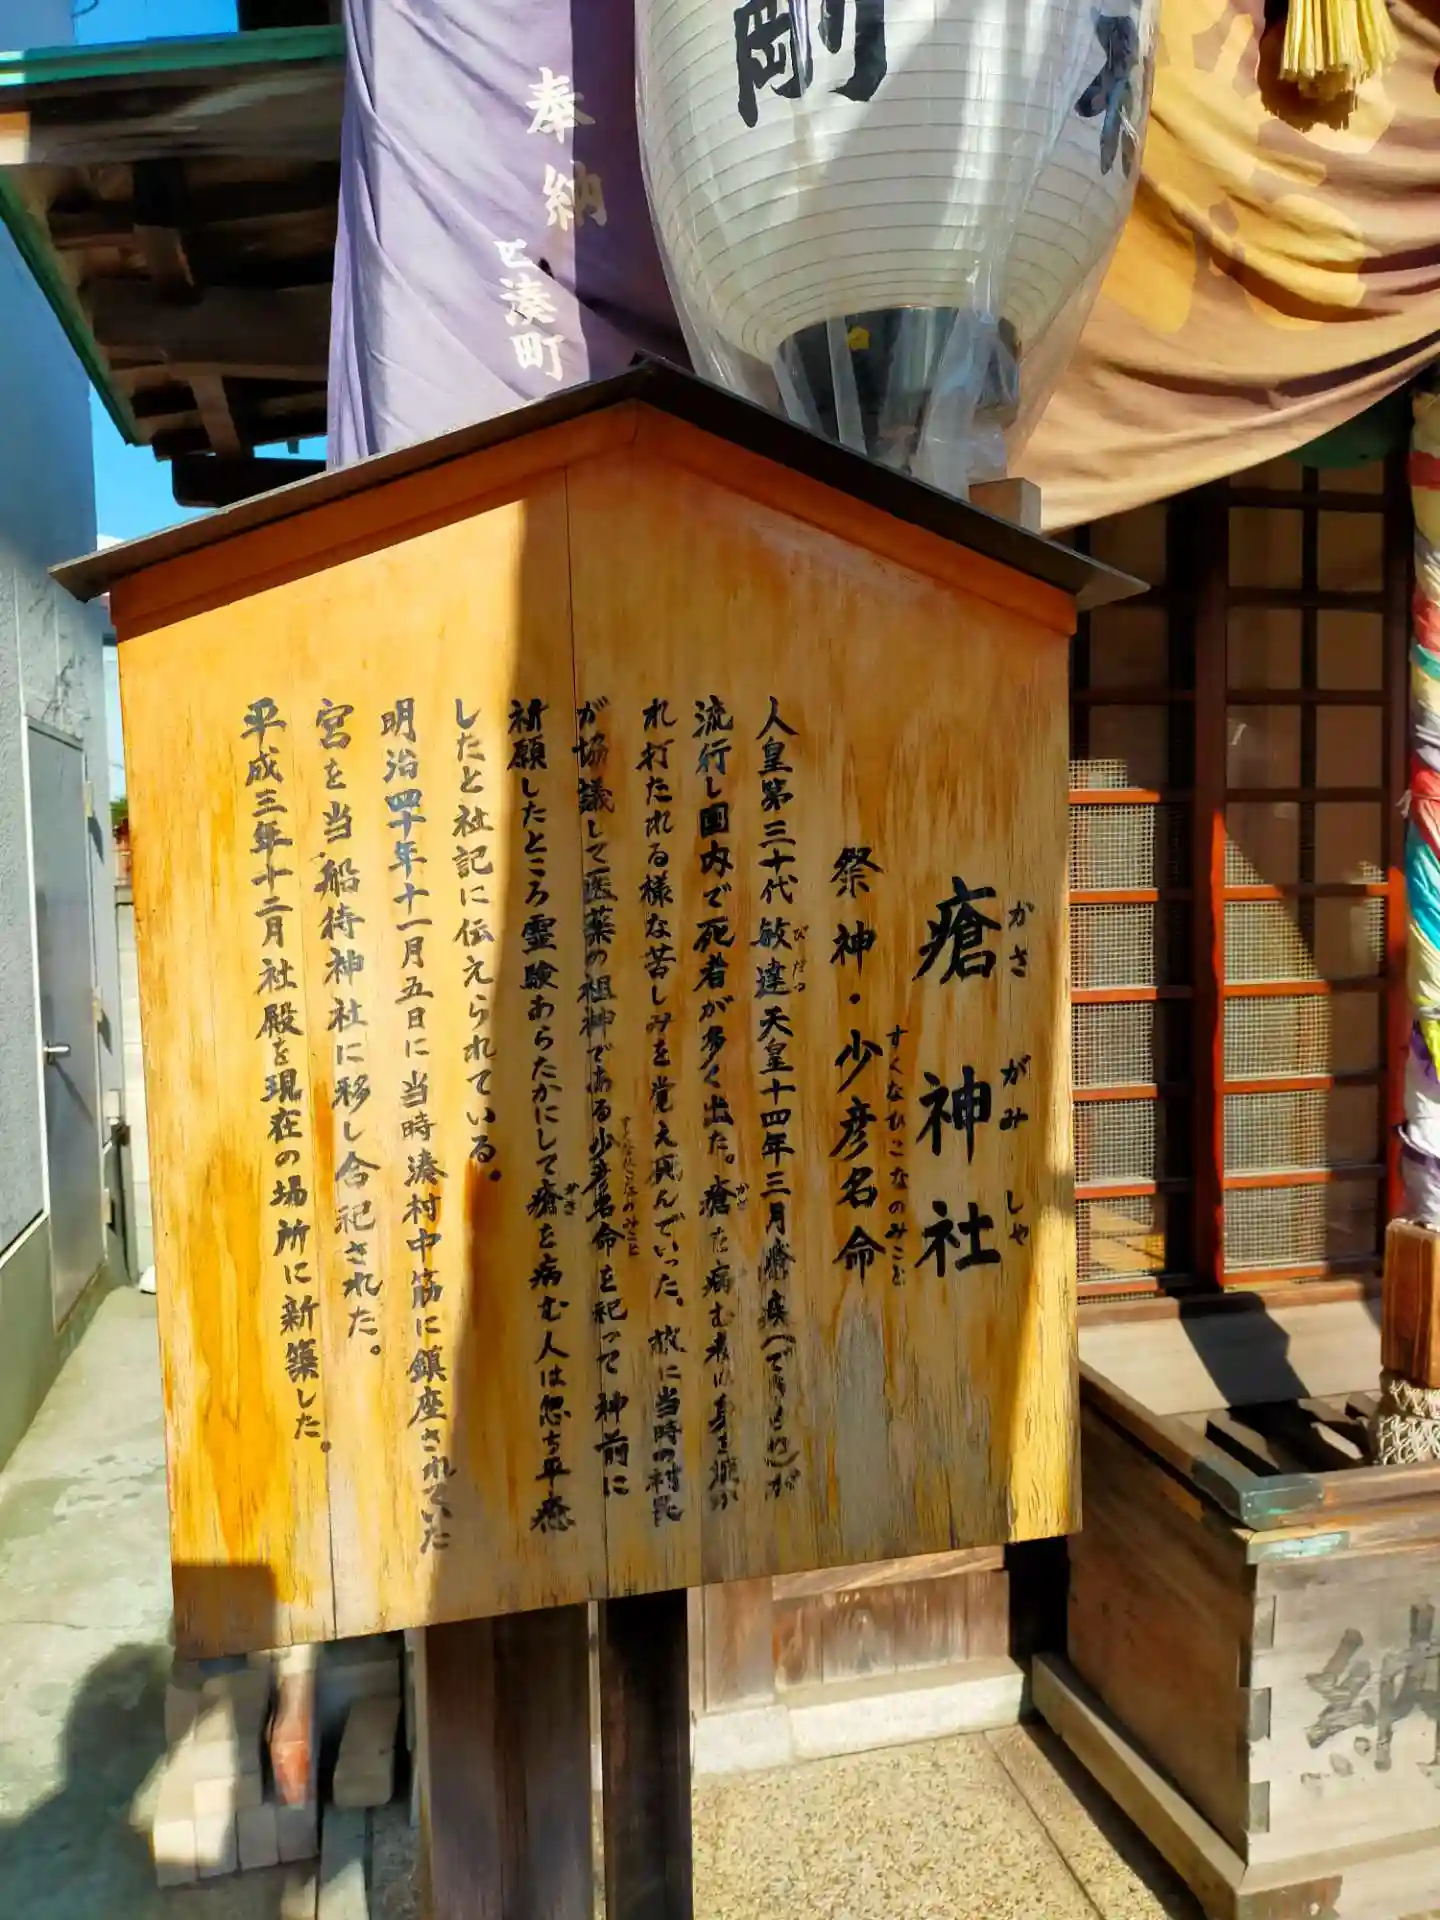 瘡神社
かさがみしや
祭神・少彦名命
すくなひこなのみこと
人皇第三十代敏達天皇十四年三月瘡疾(できもの)が
びだつ
流行し国内で死者が多く出た。瘡を病む者は身を焼か
かさ
れ打たれる様な苦しみを覚え死んでいった。故に当時の村民
が協議して医薬の祖神である少彦名命を祀って神前に
すくなひこなのみこと
祈願したところ霊験あらたかにして瘡を病む人は忽ち平癒
かさ
したと社記に伝えられている。
明治四十年十一月五日に当時湊村中筋に鎮座されていた
宮を当船待神社に移し合祀された。
平成三年十二月社殿を現在の場所に新築した。
奉納
区湊町
剛
納